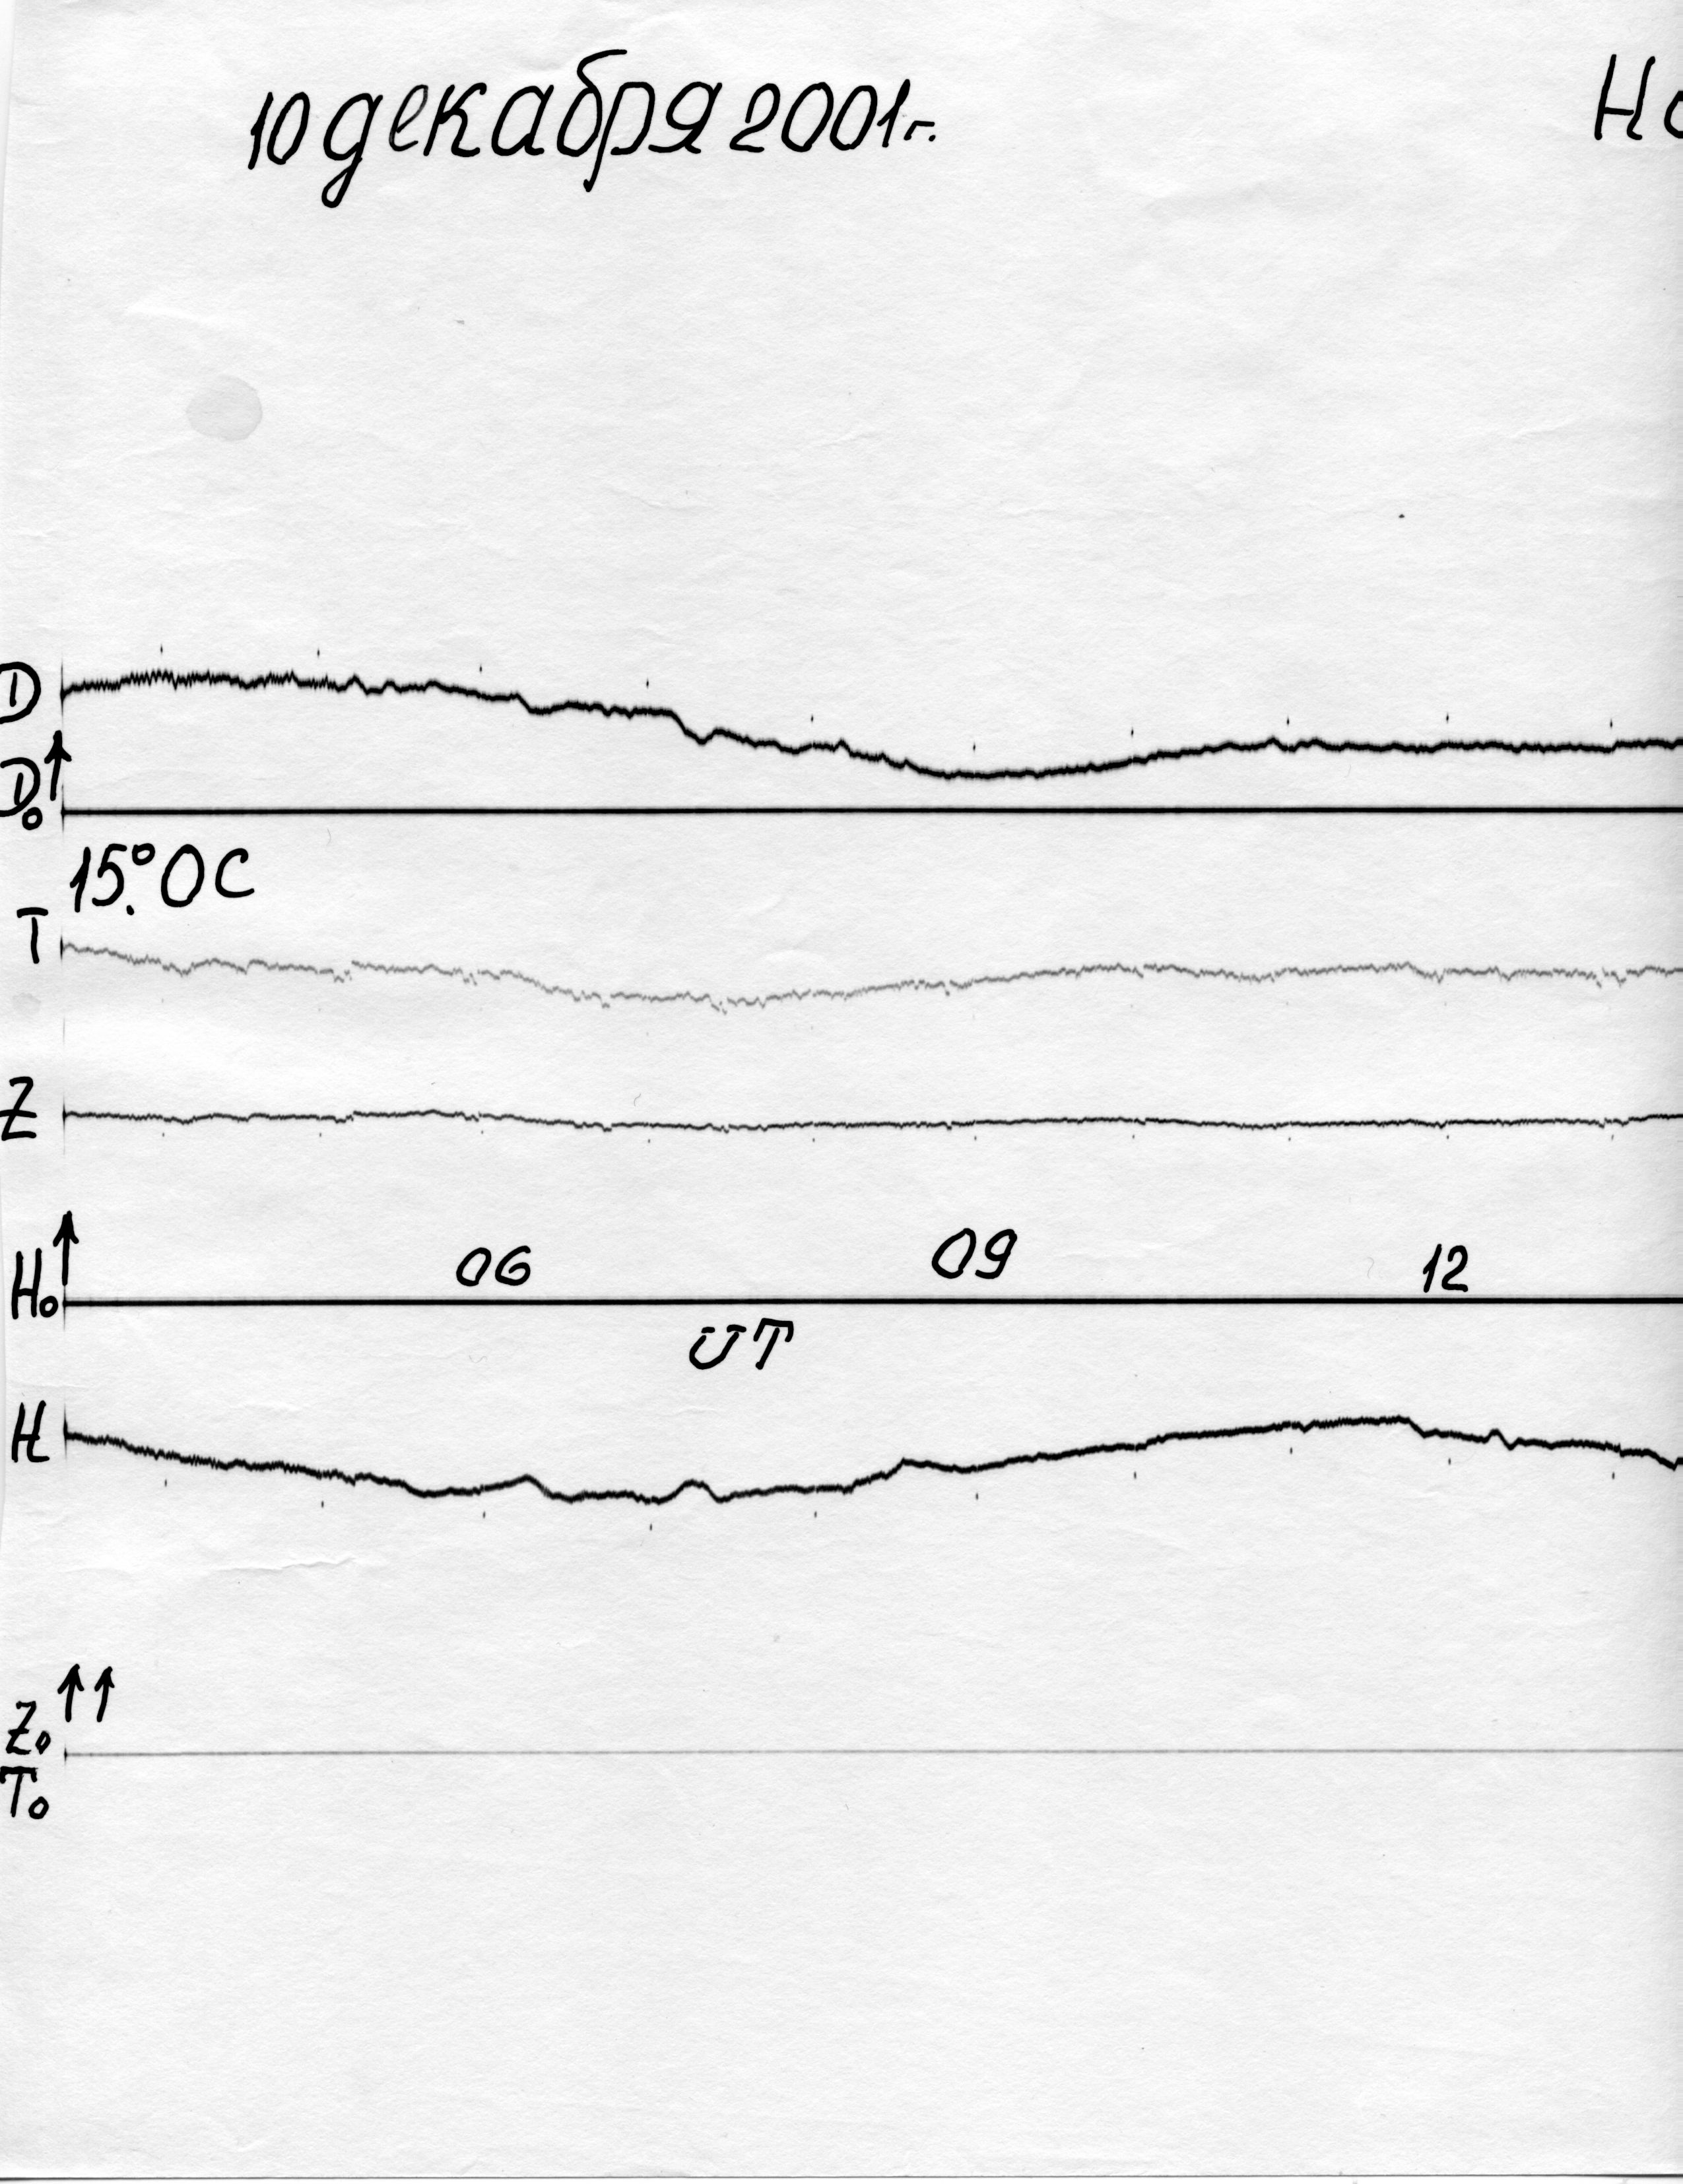 10 декабря 2001г. Но
D
D₀
15.°0 C
T
Z
06 09 12
H₀
UT
H
Z₀
T₀